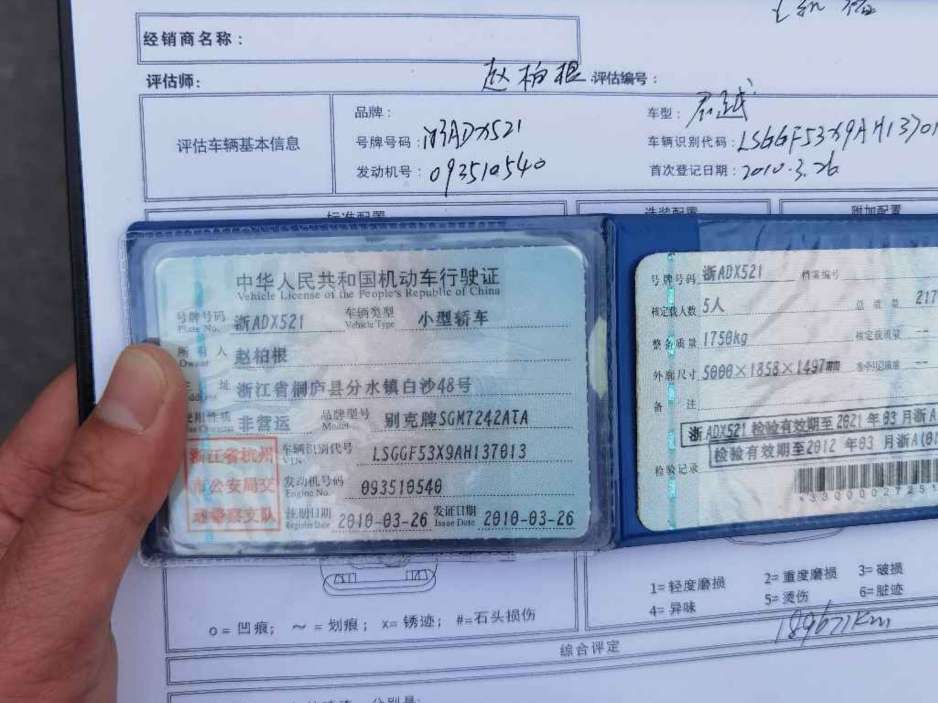 经销商名称：
评估师： 赵柏根 评估编号：
评估车辆基本信息
品牌： 车型：君越
号牌号码：浙ADX521 车辆识别代码：LSGGF53X9AH13701
发动机号：093510540 首次登记日期：2010.3.26
标准配置 选装配置 附加配置
中华人民共和国机动车行驶证
Vehicle License of the People's Republic of China
号牌号码 浙ADX521 车辆类型 小型轿车
Plate No. Vehicle Type
所有人 赵柏根
Owner
住址 浙江省桐庐县分水镇白沙48号
使用性质 非营运 品牌型号 别克牌SGM7242ATA
Model
浙江省杭州
市公安局交
通警察支队
车辆识别代号 LSGGF53X9AH137013
VIN
发动机号码 093510540
Engine No.
注册日期 2010-03-26 发证日期 2010-03-26
Register Date Issue Date
号牌号码 浙ADX521 档案编号
核定载人数 5人 总质量 217
整备质量 1750kg 核定载质量 --
外廓尺寸 5000×1858×1497mm --
备注
浙ADX521 检验有效期至2021年03月浙A
检验有效期至2012年03月浙A(01
检验记录
1=轻度磨损 2=重度磨损 3=破损
4=异味 5=烫伤 6=脏迹
o=凹痕； ～=划痕； x=锈迹； #=石头损伤
189671Km
综合评定